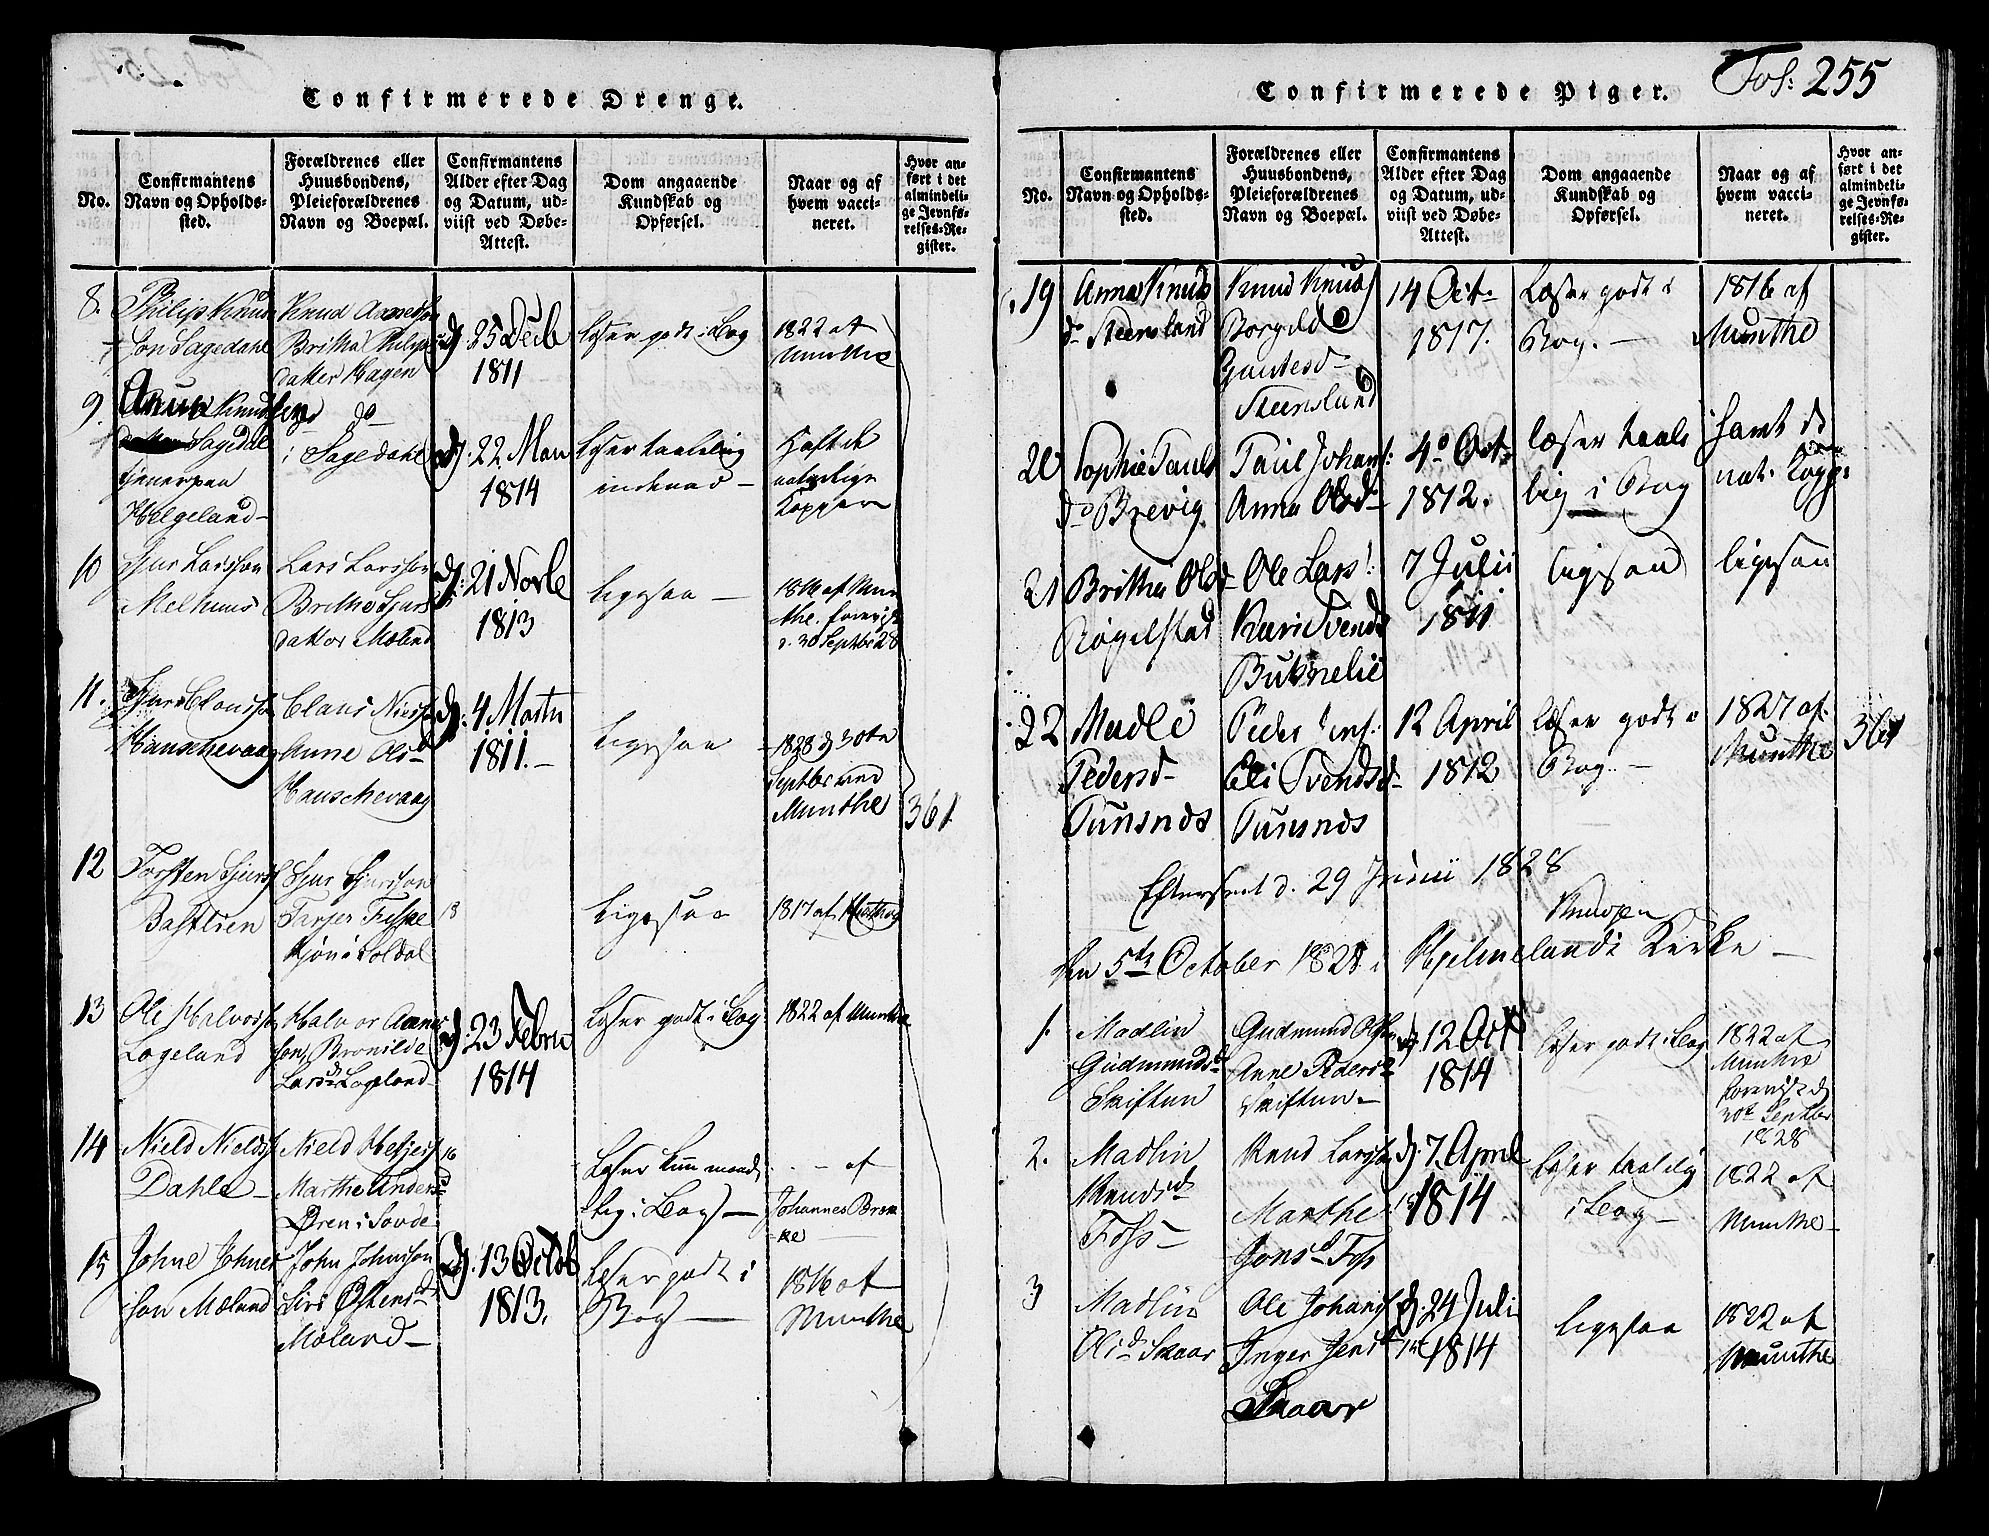 Confirmerede Drenge.
No.
Confirmantens Navn og Opholdssted.
Forældrenes eller Huusbondens, Pleieforældrenes Navn og Boepæl.
Confirmantens Alder efter Dag og Datum, udviist ved Døbe-Attest.
Dom angaaende Kundskab og Opførsel.
Naar og af hvem vaccineret.
Hvor anført i det almindelige Jevnførelses-Register.
8.
Philip Knud
son Sagedahl
Knud
Britha Philips
datter Hagen
25 Decb
1811
læser godt i Bog
1822 af
Munthe
9.
Knudsen
Sagedal
tjener paa
Helgeland
do
i Sagedahl
22 Mai
1814
læser taalelig
indenad
haft de
naturlige
Kopper
10
Sjur Larsson
Melhuus
Lars Larsson
Britha Sjurs
datter Mæland
21 Novbe
1813
ligesaa
1816 af Mun
the. foreviist
d. 30 Septbr 28
11.
Sjur Clausson
Hauschevaag
Claus Nielss
Anne Olsd
Hauschevaag
4 Martii
1811.
Ligesaa
1828 d 30te
Septbr ved
Munthe
361
12
Torsten Sjurss
Bastlien
Sjur Sjursson
18
Ligesaa
1817 af
13
Ole Halvorss
Lageland
Halvor
son, Bronilde
Larsd Lageland
23 Febru
1814
læser godt i Bog
1822 af Munthe
14
Nield Nieldss
Dahle
Nield
Marthe Anders
Øren i Sovde
16
læser
lig i Bog
af
Johannes
15
Johne Johnes
son Mæland
John Johnsson
Siri Østensd
Mæland
13 Octob
1813.
læser godt i
Bog
1816 af
Munthe
Confirmerede Piger.
Fol: 255
No.
Confirmantens Navn og Opholdssted.
Forældrenes eller Huusbondens, Pleieforældrenes Navn og Boepæl.
Confirmantens Alder efter Dag og Datum, udviist ved Døbe-Attest.
Dom angaaende Kundskab og Opførsel.
Naar og af hvem vaccineret.
Hvor anført i det almindelige Jevnførelses-Register.
19
Anna Knuds
d. Steensland
Knud Knuds
Borgild
Gautesd
Steensland
14 Oct.
1817.
Læser godt i
Bog.
1816 af
Munthe
20
Sophie Pauls
d. Brevig
Paul Johans:
Anna Olsd
4. Oct.
1812.
læser taale
lig i Bog
hawt de
nat. Kopp:
21
Britha Olsd
Røgelstad
Ole Lars:
Kari Svends
7 Julii
1811
ligesaa
ligesaa
22
Madle
Pedersd
Tunsnes
Peder
Eli Svendsd
Tunsnes
12 April
1812
læser godt i
Bog.
1827 af
Munthe
361
Efterseet d. 29 Junii 1828
Knudsen
den 5te October 1828 i Hjelmelands Kirke
1.
Madlin
Gudmundsd
Skiftun
Gudmund Olsen
Anne Pedersd
Skiftun
12 Oct
1814
læser godt i Bog
1822 af
Munthe
foreviist d
30te Septbr
1828
2.
Madlin
Knudsd
Foss
Knud Larsson
Marthe
Jonsd. Foss
7. April
1814
læser taalelig
i Bog
1822 af
Munthe
3
Madlin
Olsd Skaar
Ole Johanss
Inger Jensd
Skaar
24 Juli
1814
ligesaa
1822 af
Munthe